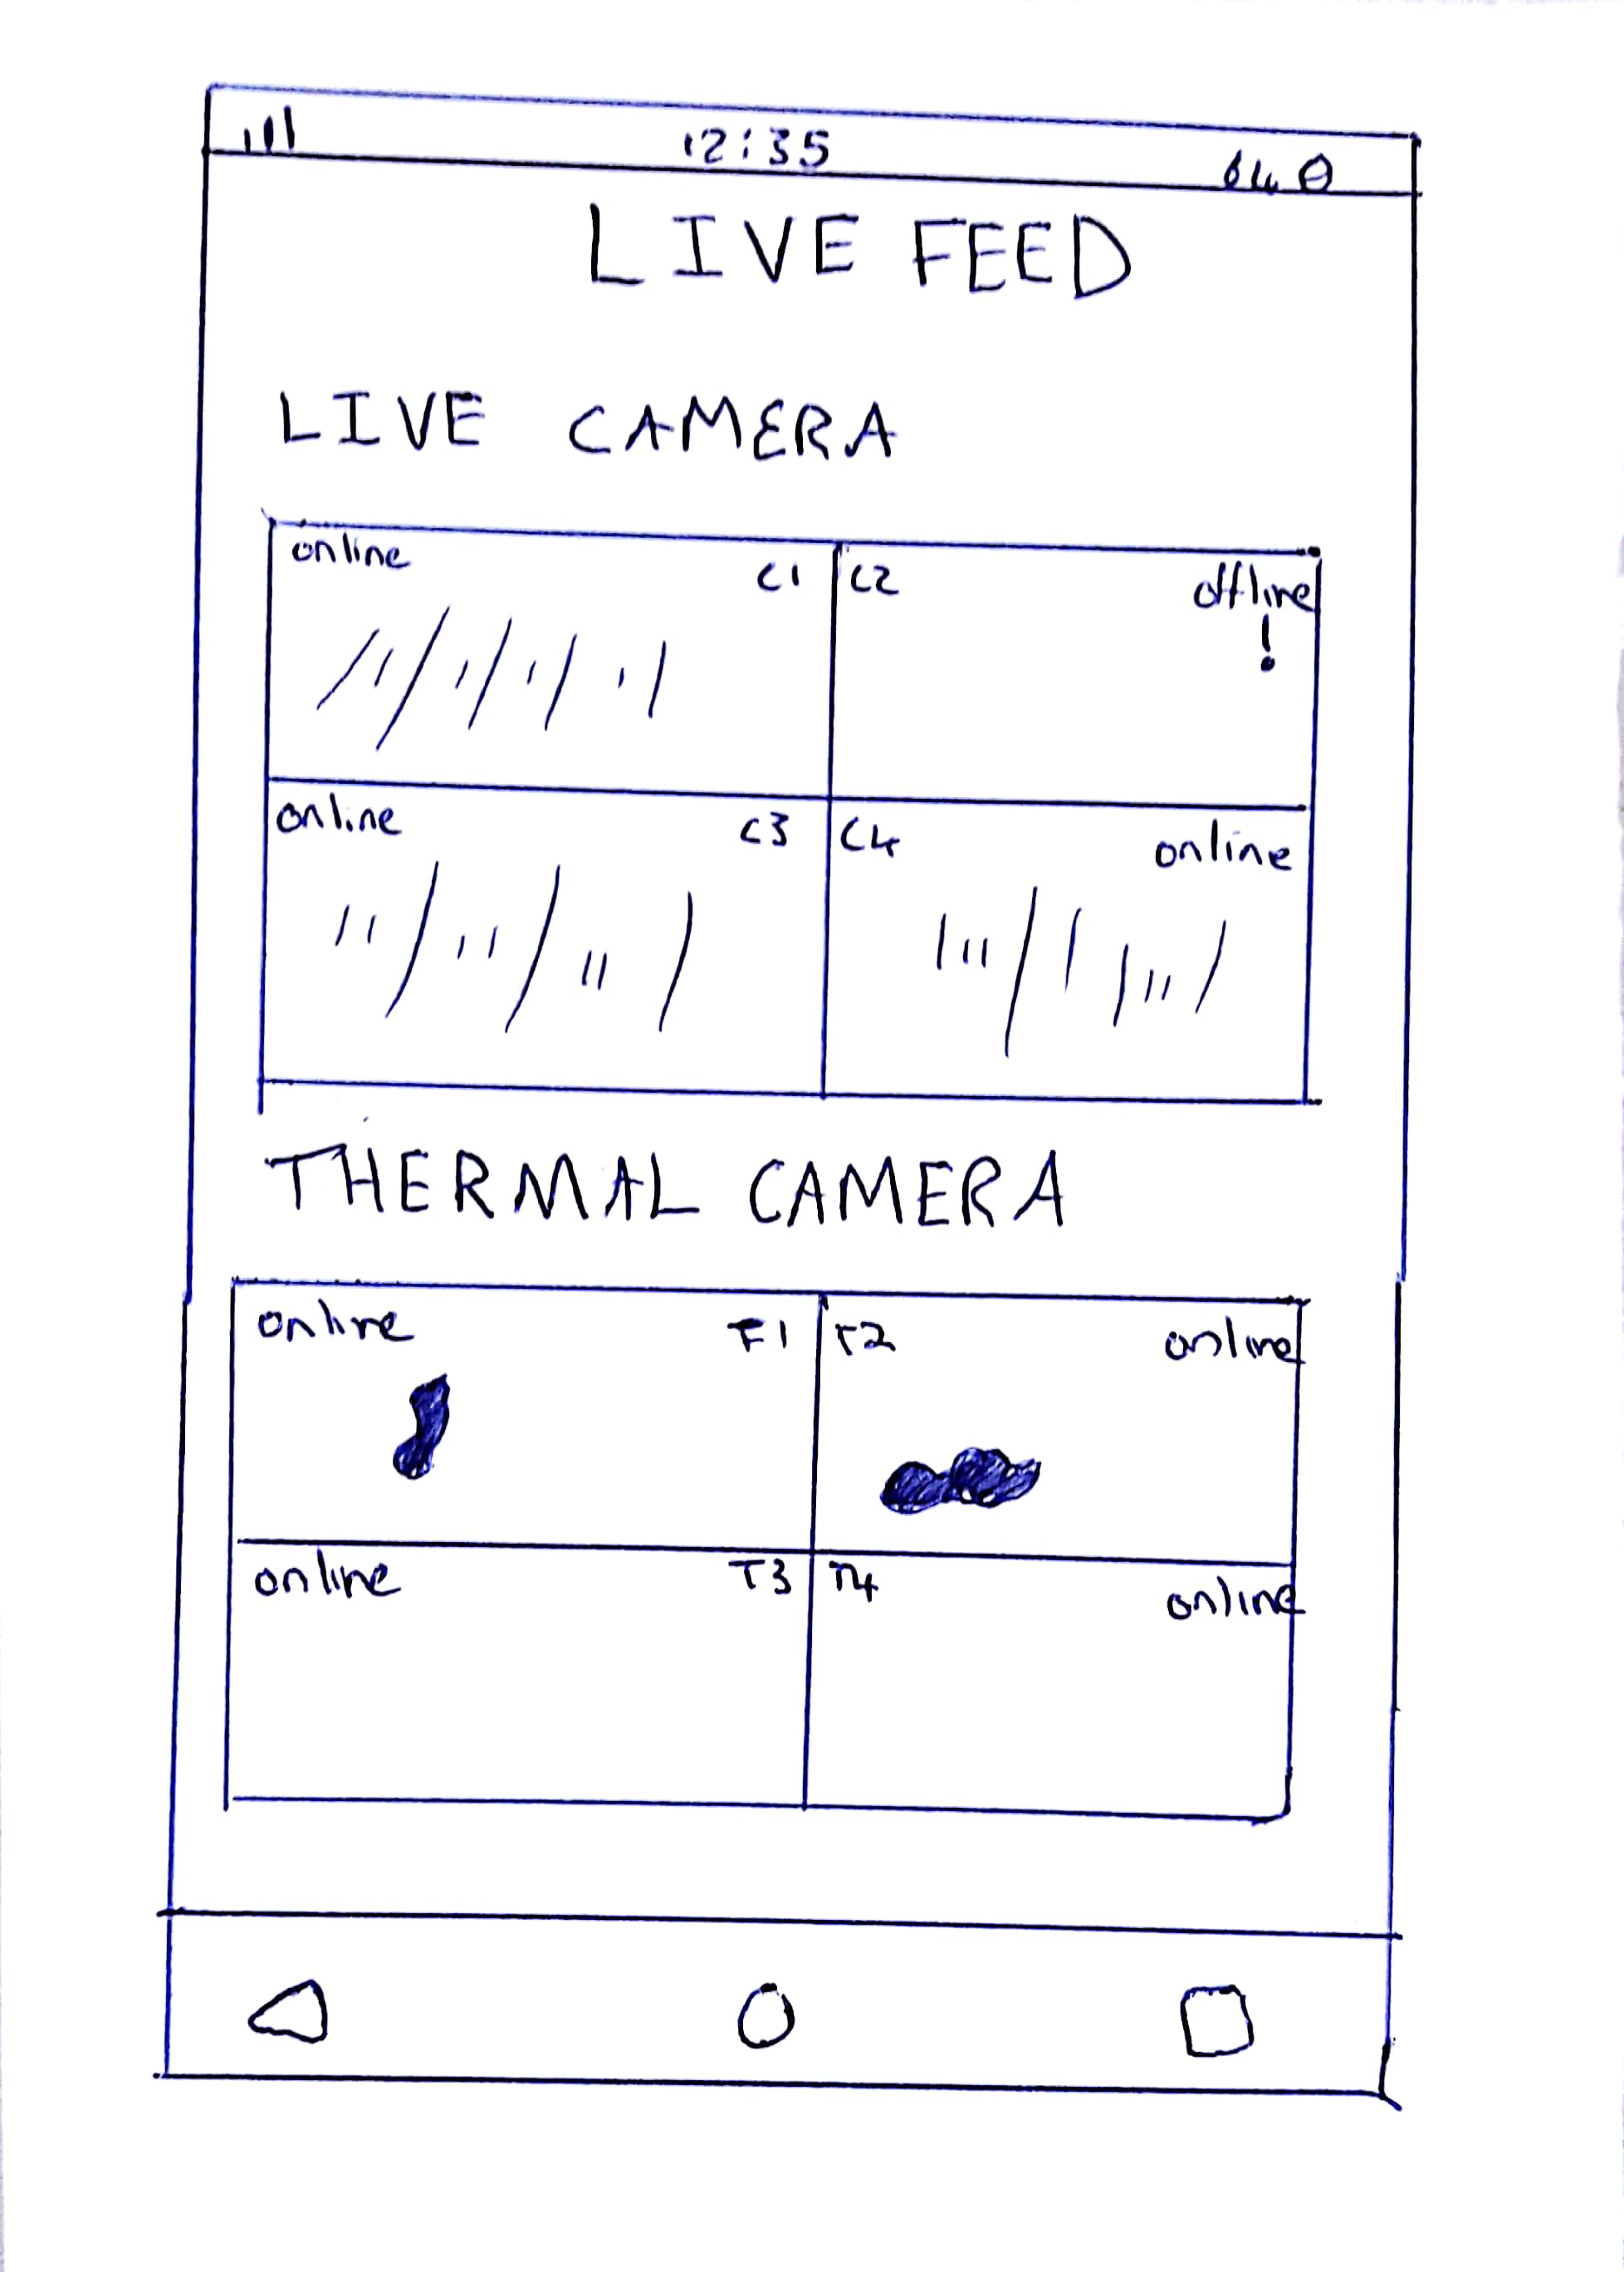 12:35
LIVE FEED
LIVE CAMERA
online C1 C2 offline
!
online C3 C4 online
THERMAL CAMERA
online T1 T2 online
online T3 T4 online